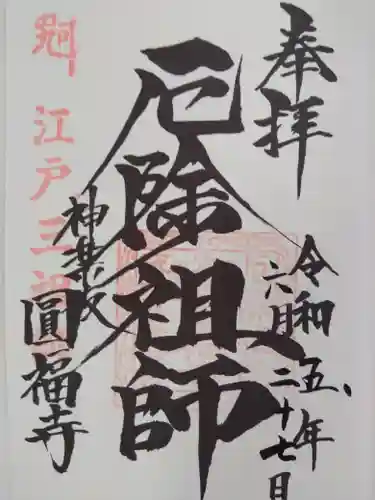 奉拝
令和五年
六月二十七日
厄除祖師
神楽坂
圓福寺
江戸三祖